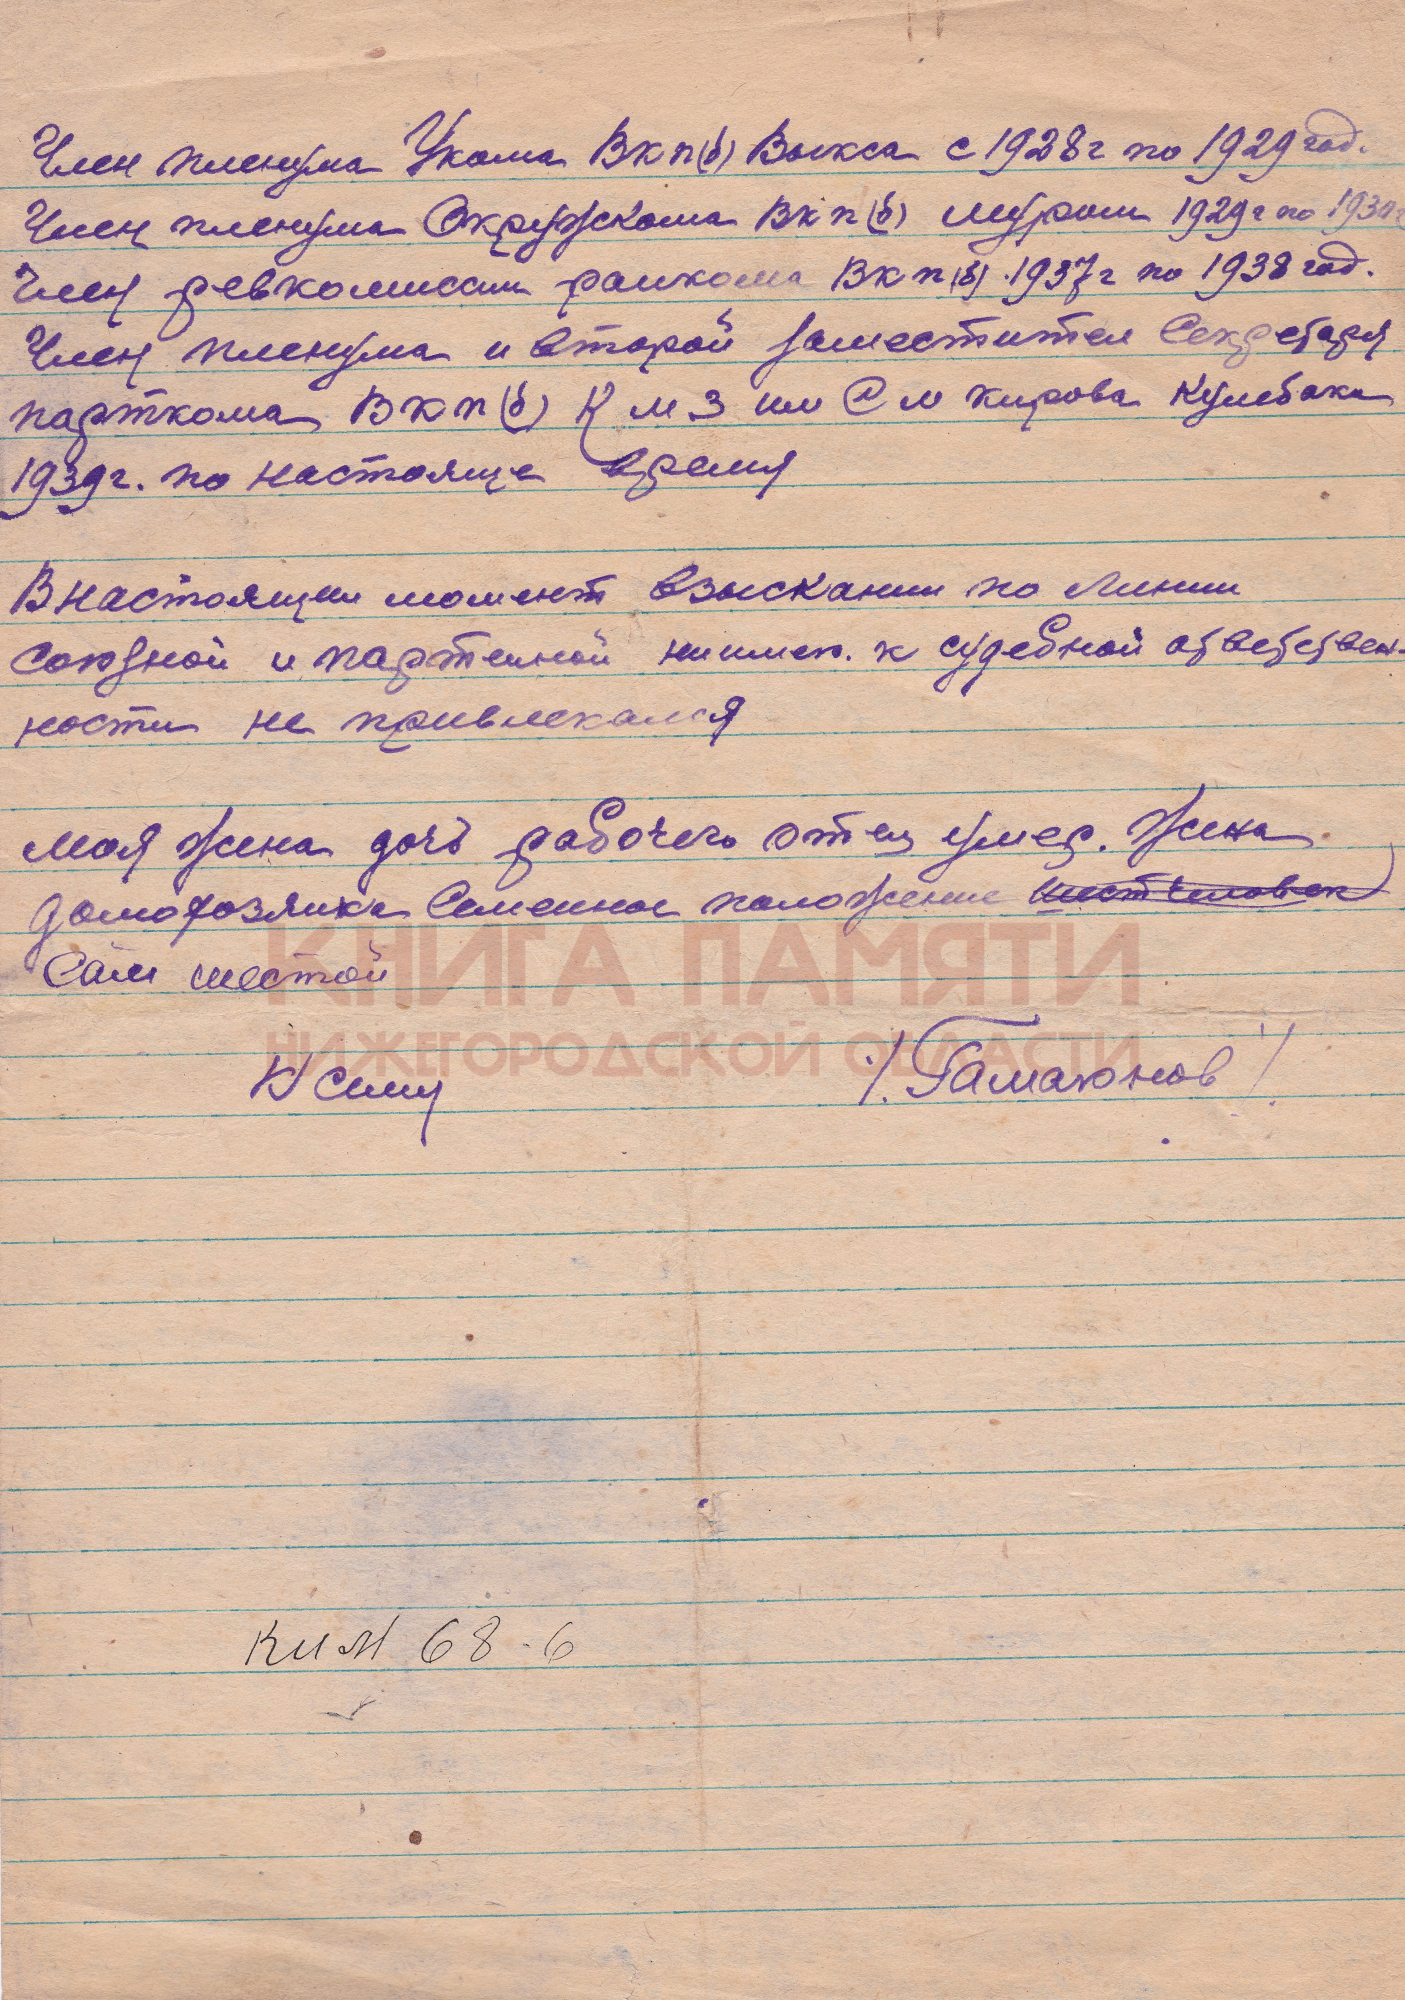 Член пленума Укома Вкп(б) Выкса с 1928г по 1929 год.
Член пленума Окружкома Вкп(б) муром 1929г по 1930г
Член ревкомиссии раикома Вкп(б). 1937г по 1938 год.
Член пленума и второй заместител Секретаря
парткома Вкп(б) К м З им С м кирова Кулебаки
1939г. по настояще время
В настоящем момент взыскании по Линии
союзной и партеиной ниимею. к судебной ответствен-
ности не привлекался
моя жена дочь рабочего отец умер. Жена
домохозяика Семеиное положение шест человек
Сам шестой
КНИГА ПАМЯТИ
НИЖЕГОРОДСКОЙ ОБЛАСТИ
К сему /. Гамаюнов /.
КИМ 68-6